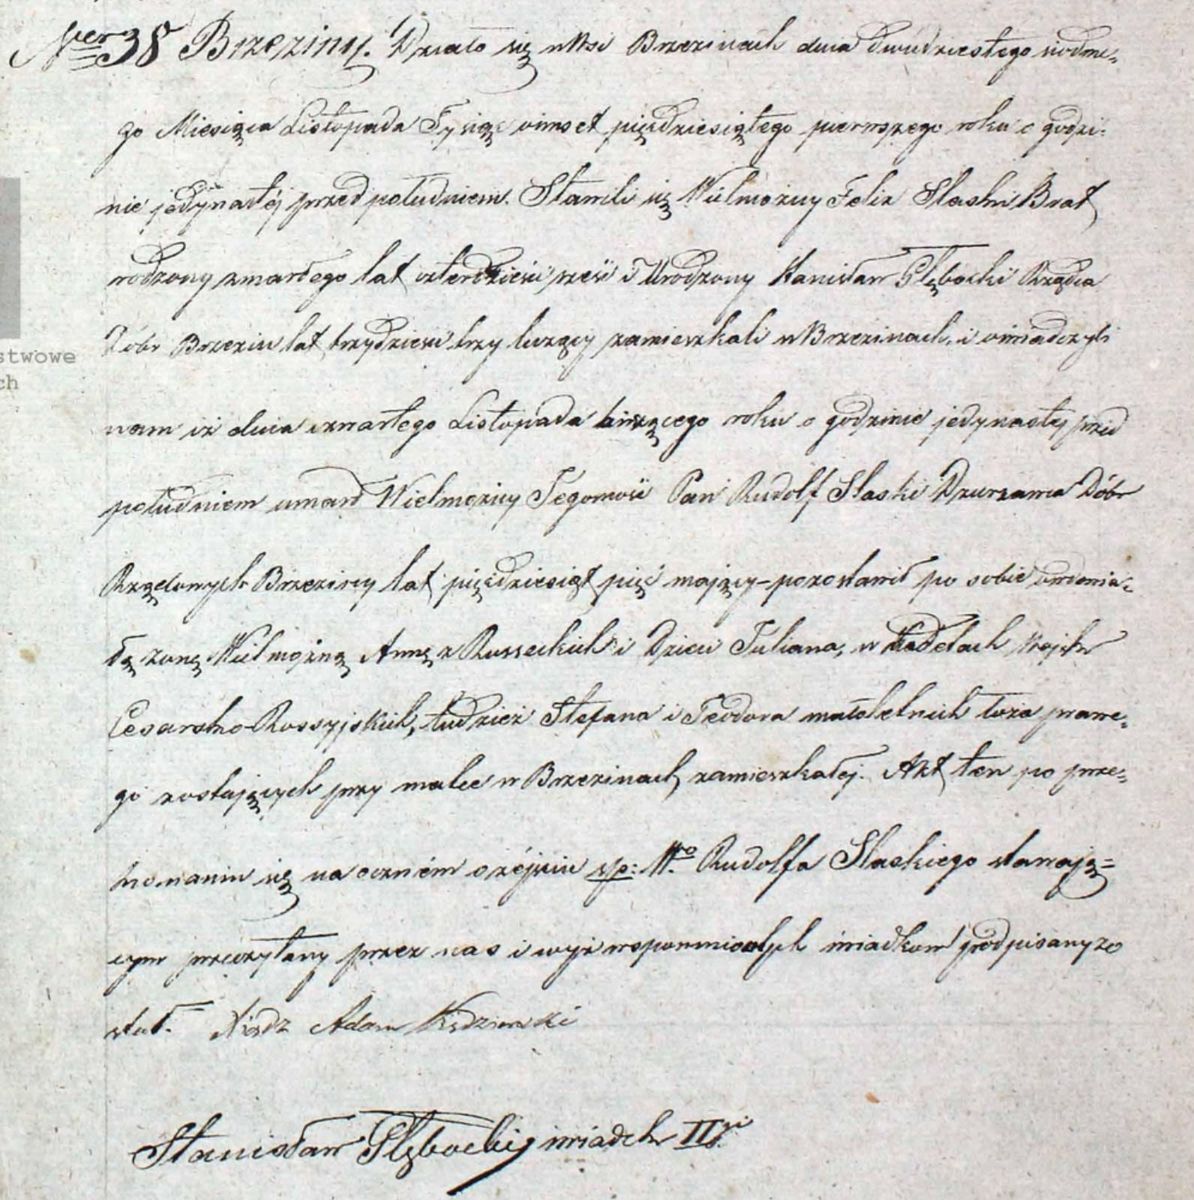 Ner 38 Brzeziny. Działo się w Wsi Brzezinach dnia dwudziestego siodme-
go Miesiąca Listopada Tysiąc ośmset pięcdziesiątego pierwszego roku o godzi-
nie jedynastéj przed południem. Stawili się Wielmożny Felix Slaski Brat
rodzony zmarłego lat czterdzieści sześć i Urodzony Stanisław Głębocki Rządca
Dóbr Brzezin lat trzydzieści trzy liczący zamieszkali w Brzezinach, i oświadczyli
nam iż dnia czwartego Listopada bieżącego roku o godzinie jedynastej przed
południem umarł Wielmożny Jegomość Pan Rudolf Slaski Dzierżawca Dóbr
Rządowych Brzeziny lat pięcdziesiąt pięć mający - pozostawił po sobie owdowia-
łą żonę Wielmożną Annę z Russeckich i Dzieci Juliana, w Kadetach Wojsk
Cesarsko-Rossyjskich, tudzież Stefana i Teodora małoletnich łoża prawe-
go zostających przy matce w Brzezinach zamieszkałej. Akt ten po prze-
konaniu się naoczném o zéjściu śp: W.o Rudolfa Slaskiego stawają=
cym przeczytany przez nas i wyż wspomnionych świadków podpisany zo
stał. Xiądz Adam
Stanisław Głębocki świadek IIgi
stwowe
ch